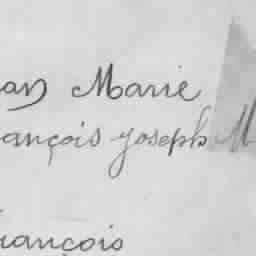 an Marie
ançois Joseph M
rançois